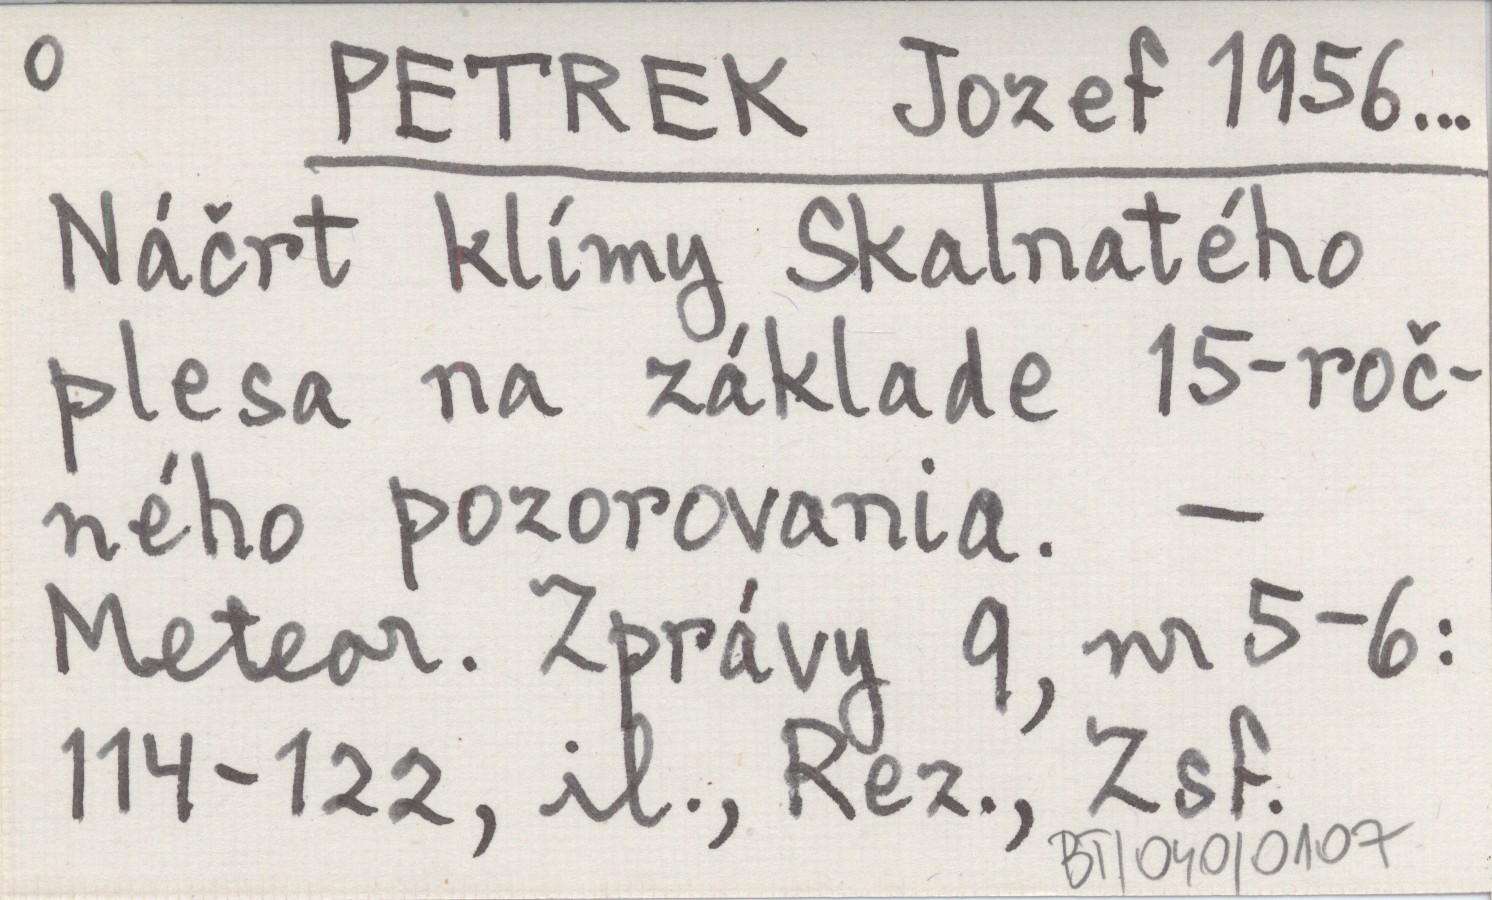 O PETREK Jozef 1956...
Náčrt klímy Skalnatého
plesa na základe 15-roč-
ného pozorovania. —
Meteor. Zprávy 9, nr 5-6:
114-122, il., Rez., Zsf.
BT/040/0107